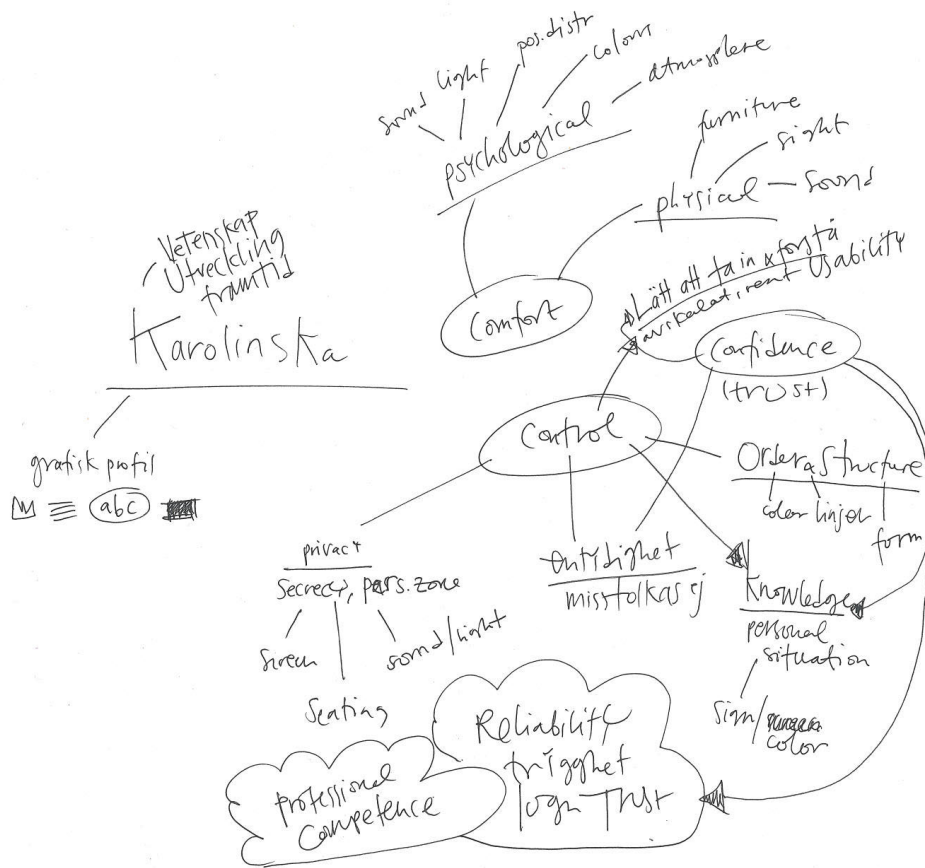 sound
light
pos.distr
colours
atmosphere
psychological
furniture
sight
physical
sound
Vetenskap
Utveckling
framtid
Karolinska
Comfort
Lätt att ta in & förstå
avskalat, rent Usability
Confidence
(trust)
Control
grafisk profil
abc
Order & Structure
color linjer
form
privacy
Secrecy, pers. zone
Screen
sound/light
Seating
Entydighet
misstolkas ej
Knowledge
personal
situation
sign/
color
Reliability
trygghet
lugn Trust
Professional
Competence